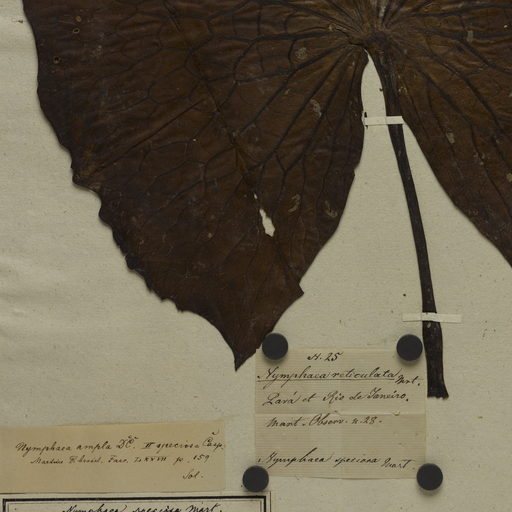 N. 25
Nymphaea reticulata Mart.
Pará et Rio de Janeiro.
Mart. Observ. n. 28.
Nymphaea speciosa Mart.
Nymphaea ampla DC. II speciosa Casp.
Martius Fl. brasil. Fasc. LXXVII p. 159
Sol.
Nymphaea speciosa Mart.